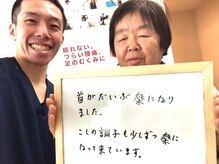 眠れない、
つらい腰痛、
足のむくみに
首がだいぶ楽になり
ました。
こしの調子も少しずつ楽に
なって来ています。